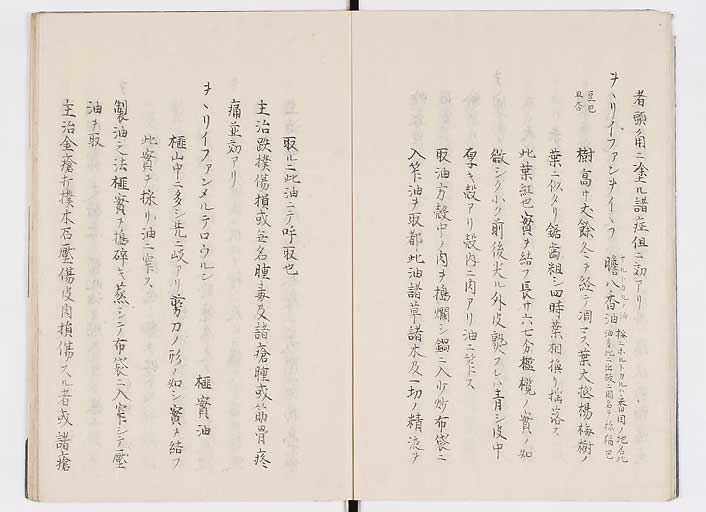 者頭角ニ塗ル諸症俱ニ効アリ
ヲヽリイファンヲイヽフ 膽八香油
ナルトカルノ油
按ニホルトカルハ番国ノ地名此
油多此ニ出故ニ国名ヲ称稲巴
豆巴
且杏
樹高サ丈餘冬ヲ経テ凋マス葉大抵楊梅樹ノ
葉ニ似タリ鋸歯粗シ四時葉相換リ揺落ス
此葉紅也實ヲ結フ長サ六七分橄欖ノ實ノ如
微シク小ク前後尖ル外皮熟フレハ青シ皮中
厚キ殻アリ殻内ニ肉アリ油ニ笮ス
取油方殻中ノ肉ヲ搗爛シ鍋ニ入少炒布袋ニ
入笮油ヲ取都此油諸草諸木及一切ノ精液ヲ
取ルニ此油ニテ呼取也
主治跌撲傷損或無名腫毒及諸瘡腫或筋骨疼
痛並効アリ
ヲヽリイファンメルテロウルン 榧實油
榧山中ニ多シ先ニ岐アリ剪刀ノ形ノ如シ實ヲ結フ
此實ヲ採リ油ニ窄ス
製油之法榧實ヲ搗碎キ蒸シテ布袋ニ入窄シテ壓
油ヲ取
主治金瘡打撲木石壓傷皮肉損傷スル者或諸瘡